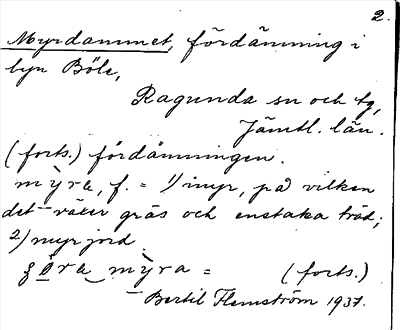 2.
Myrdammet, fördämning i
byn Böle,
Ragunda sn och tg,
Jämtl. län.
(forts.) fördämningen.
mỳra, f. = 1) myr, på vilken
det växer gräs och enstaka träd;
2) myrjord.
mỳra = (forts.)
Bertil Flemström 1937.